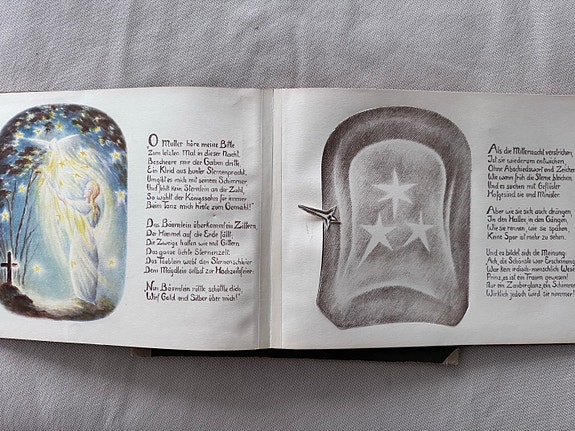 O Mutter höre meine Bitte
Zum letzten Mal in dieser Nacht.
Beschere mir der Gaben dritte,
Ein Kleid aus bunter Sternenpracht.
Umgibt es mich mit seinem Schimmer
Und fehlt kein Sternlein an der Zahl,
So wählt der Königssohn für immer
Beim Tanz mich hielte zum Gemahl!"
Das Bäumlein überkommt ein Zittern,
Der Himmel auf die Erde fällt,
Die Zweige halten wie mit Gittern
Das ganze lichte Sternenzelt.
Das Täublein webt den Sternenschleier
Dem Mägdlein selbst zur Hochzeitsfeier.
Nun Bäumlein rüttle schüttle dich,
Wirf Gold und Silber über mich!"
Als die Mitternacht verstrichen,
Ist sie wiederum entwichen,
Ohne Abschiedswort und Zeichen
Wie wenn früh die Sterne bleichen,
Und es suchen mit Geflüster
Hofgesind sie und Minister.
Aber wie sie sich auch drängen
In den Hallen in den Gängen,
Wie sie rennen, wie sie spähen,
Keine Spur ist mehr zu sehen.
Und es bildet sich die Meinung:
Ach, die Schönste war Erscheinung
War kein irdisch-menschlich Wesen
Prinz, es ist ein Traum gewesen!
Nur ein Zauberglanz, ein Schimmer
Wirklich jedoch wird sie nimmer!